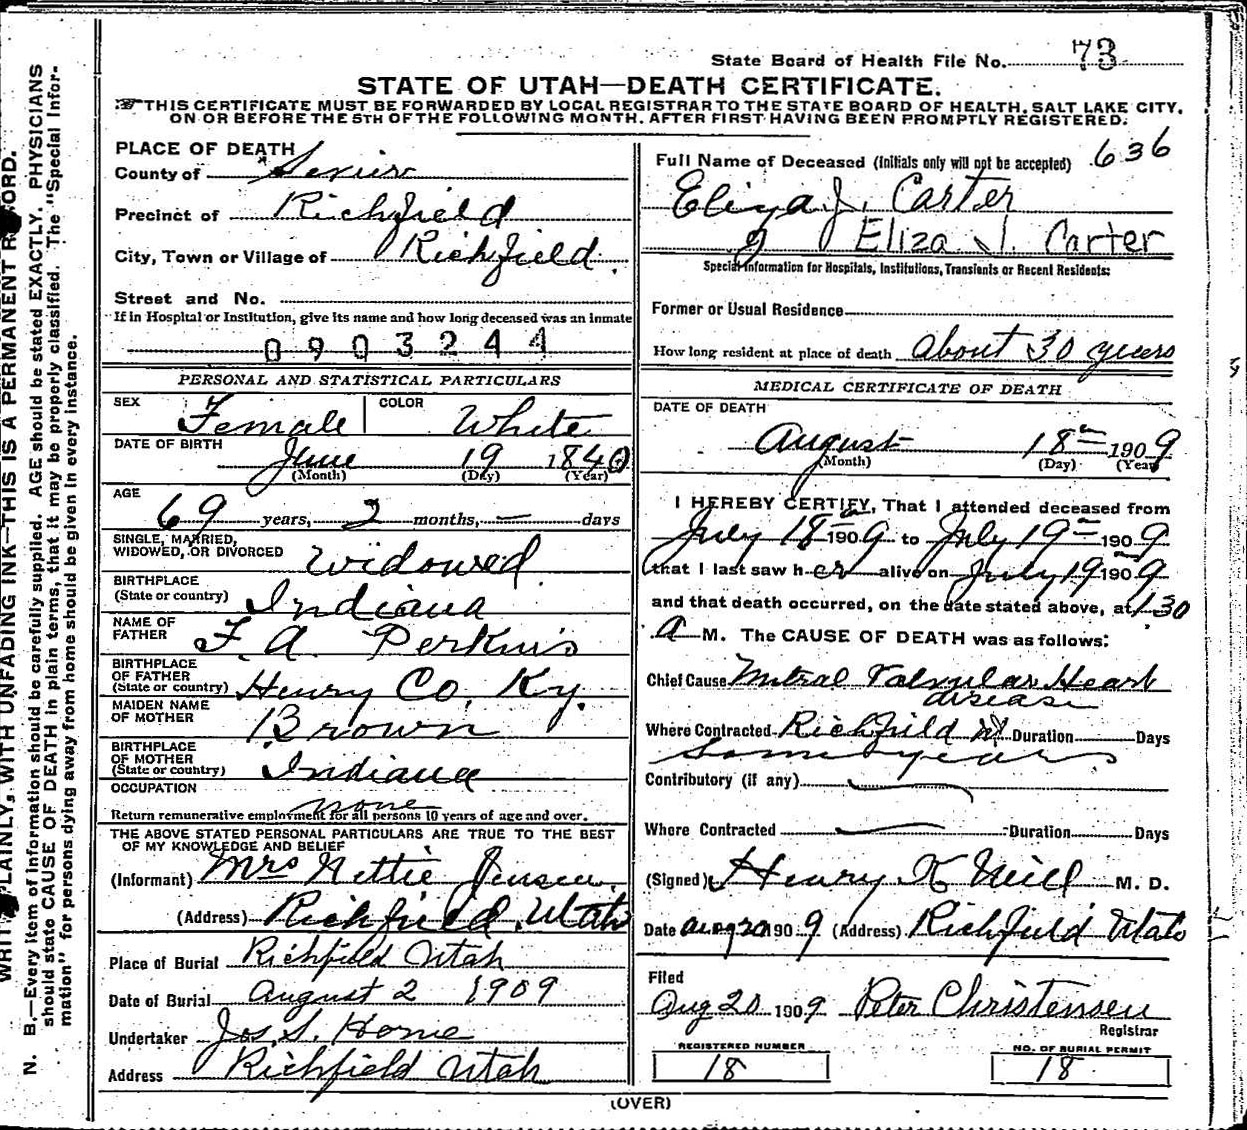 State Board of Health File No. 73
STATE OF UTAH—DEATH CERTIFICATE.
THIS CERTIFICATE MUST BE FORWARDED BY LOCAL REGISTRAR TO THE STATE BOARD OF HEALTH, SALT LAKE CITY,
ON OR BEFORE THE 5TH OF THE FOLLOWING MONTH, AFTER FIRST HAVING BEEN PROMPTLY REGISTERED.
PLACE OF DEATH
County of Sevier
Precinct of Richfield
City, Town or Village of Richfield.
Street and No.
If in Hospital or Institution, give its name and how long deceased was an inmate
0903244
PERSONAL AND STATISTICAL PARTICULARS
SEX Female COLOR White
DATE OF BIRTH June 19 1840
(Month) (Day) (Year)
AGE 69 years, 2 months, — days
SINGLE, MARRIED,
WIDOWED, OR DIVORCED Widowed
BIRTHPLACE
(State or country) Indiana
NAME OF
FATHER F. A. Perkins
BIRTHPLACE
OF FATHER
(State or country) Henry Co, Ky.
MAIDEN NAME
OF MOTHER Brown
BIRTHPLACE
OF MOTHER
(State or country) Indiana
OCCUPATION none
Return remunerative employment for all persons 10 years of age and over.
THE ABOVE STATED PERSONAL PARTICULARS ARE TRUE TO THE BEST
OF MY KNOWLEDGE AND BELIEF
(Informant) Mrs Nettie Jensen.
(Address) Richfield, Utah
Place of Burial Richfield Utah
Date of Burial August 2 1909
Undertaker Jos. S. Horne
Address Richfield Utah
636
Full Name of Deceased (Initials only will not be accepted)
Eliza J. Carter
Eliza J. Carter
Special Information for Hospitals, Institutions, Transients or Recent Residents:
Former or Usual Residence
How long resident at place of death about 30 years
MEDICAL CERTIFICATE OF DEATH
DATE OF DEATH
August 18 1909
(Month) (Day) (Year)
I HEREBY CERTIFY, That I attended deceased from
July 18 1909 to July 19 1909
that I last saw her alive on July 19 1909
and that death occurred, on the date stated above, at 1.30
A M. The CAUSE OF DEATH was as follows:
Chief Cause Mitral Valvular Heart
disease
Where Contracted Richfield Duration Days
Some years
Contributory (if any)
Where Contracted Duration Days
(Signed) Henry K Neill M. D.
Date Aug 20 1909 (Address) Richfield Utah
Filed
Aug 20 1909 Peter Christensen
Registrar
REGISTERED NUMBER
18
NO. OF BURIAL PERMIT
18
(OVER)
WRITE PLAINLY, WITH UNFADING INK—THIS IS A PERMANENT RECORD.
N. B.—Every item of information should be carefully supplied. AGE should be stated EXACTLY. PHYSICIANS
should state CAUSE OF DEATH in plain terms, that it may be properly classified. The "Special Infor-
mation" for persons dying away from home should be given in every instance.